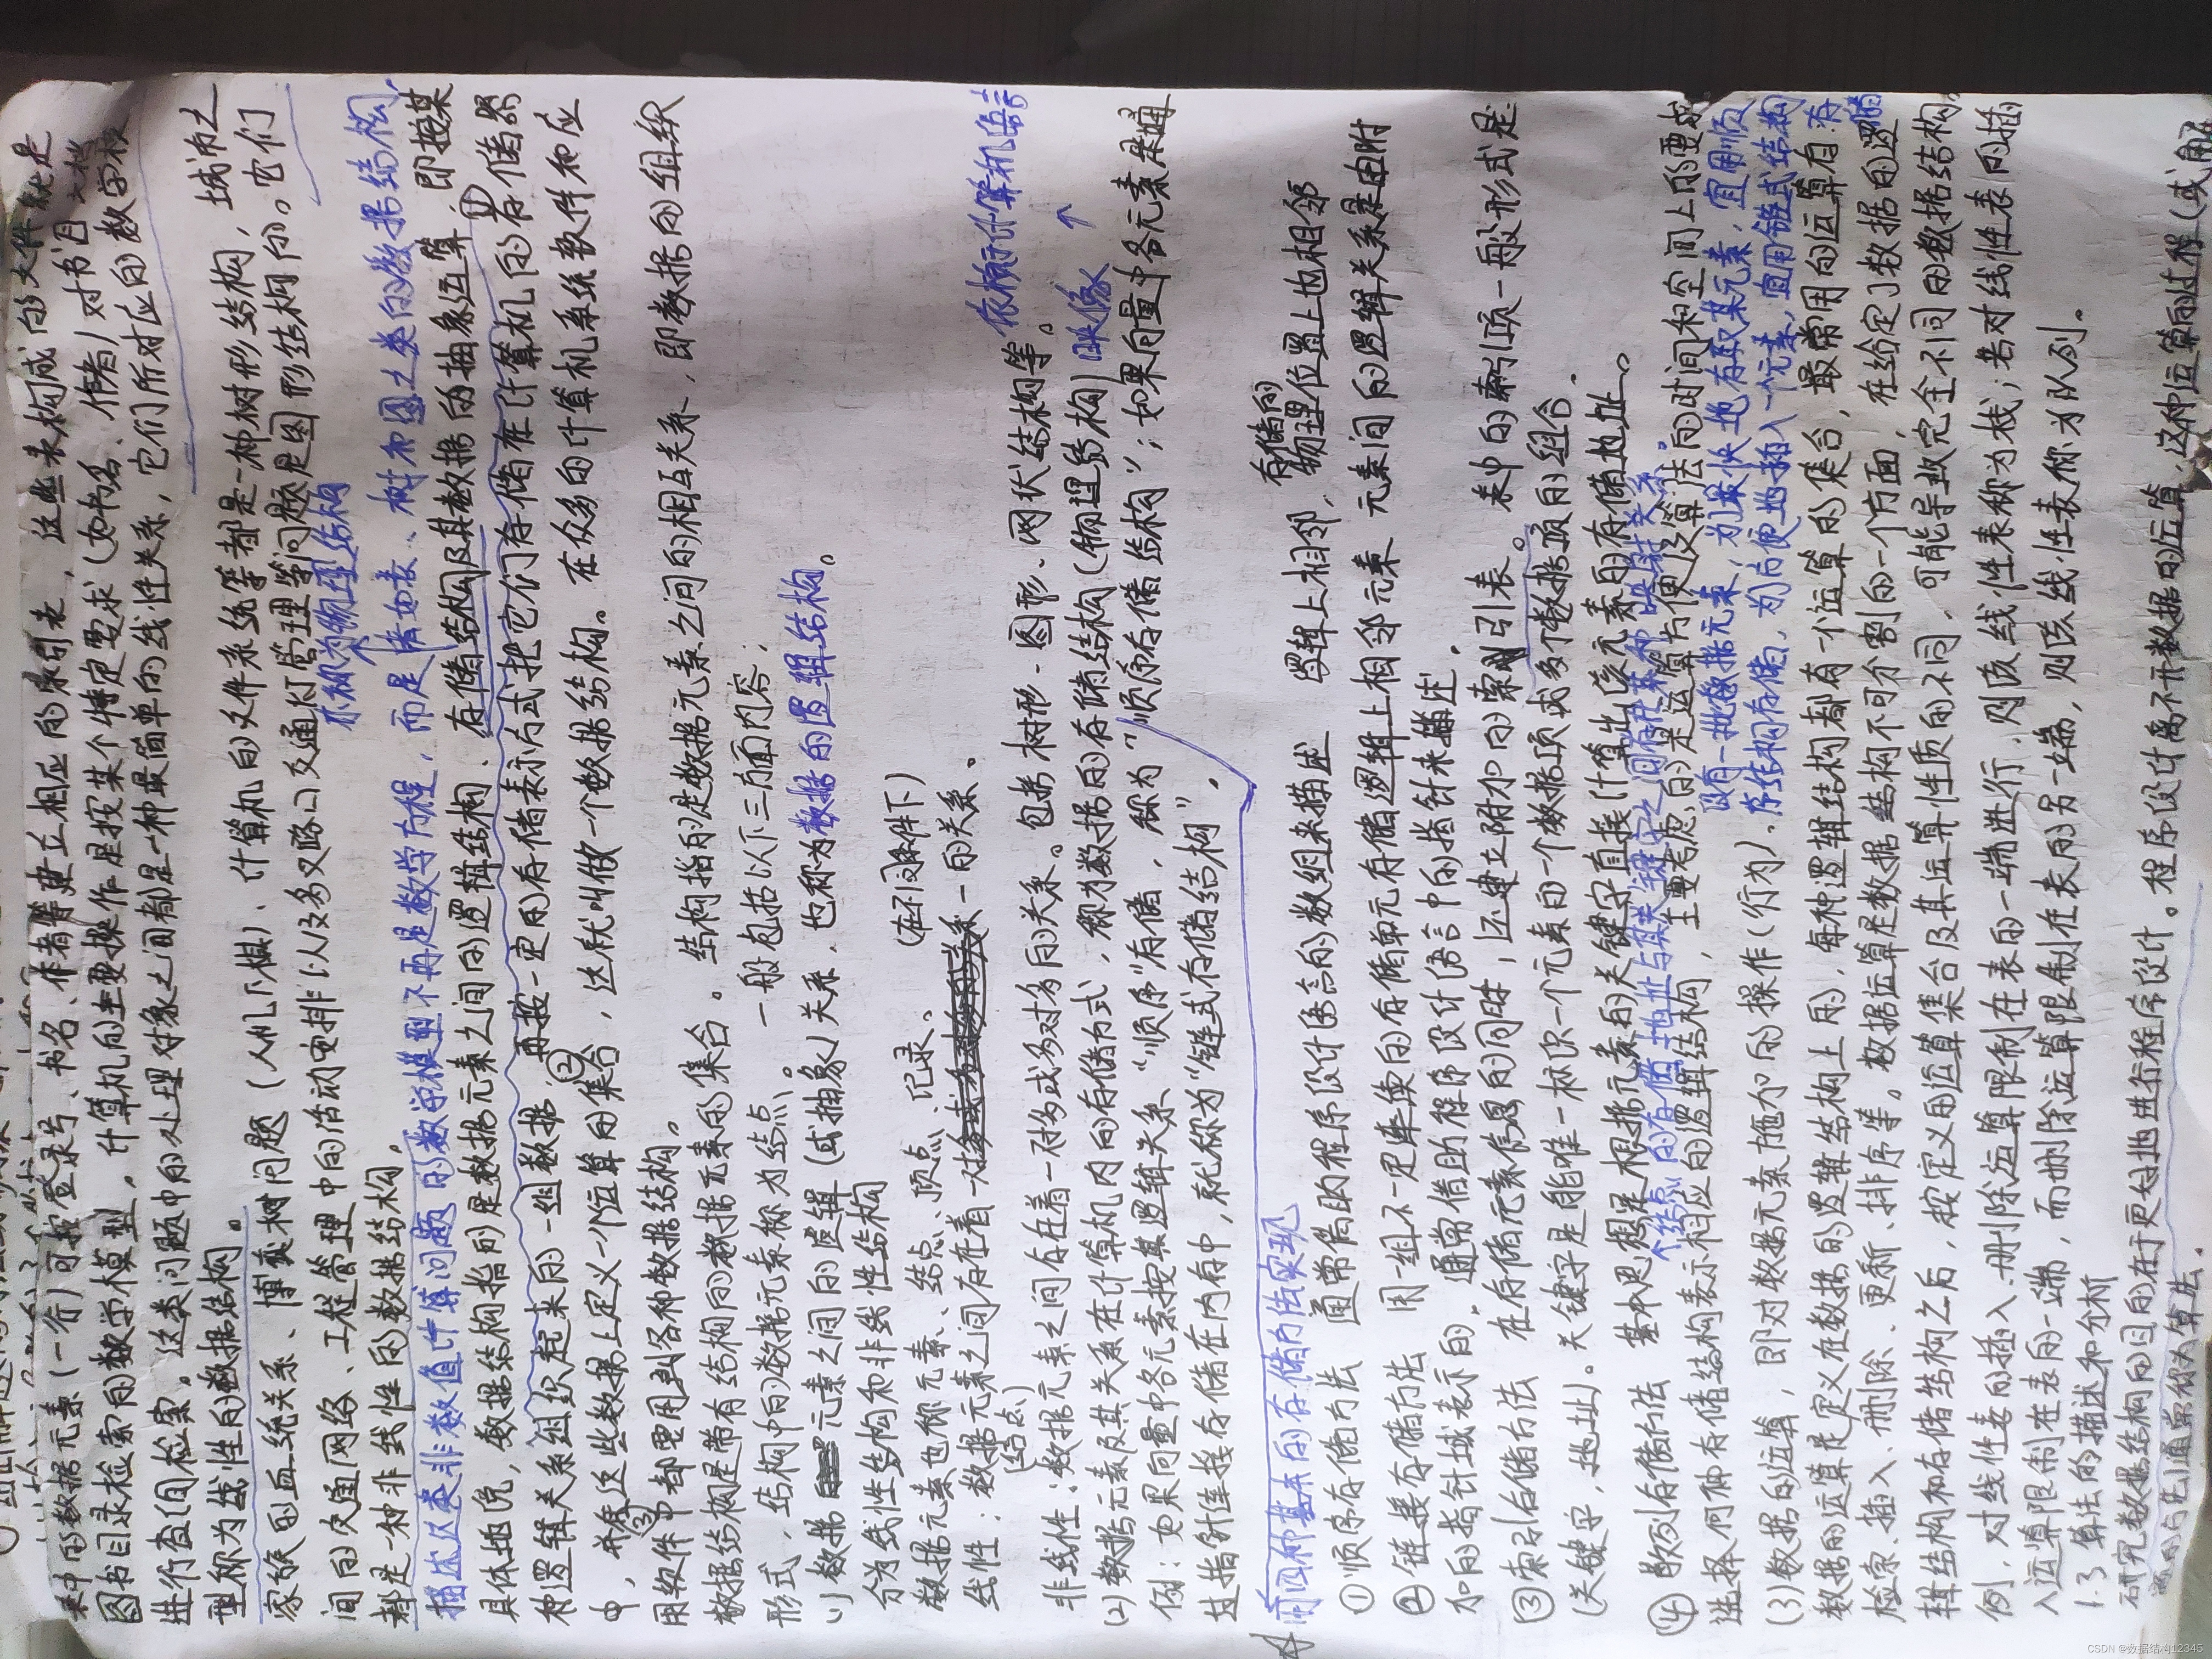 表中的数据元素(一行)可按登录号、书名、作者等建立相应的索引表，这些表构成的文件就是
图书目录检索的数学模型，计算机的主要操作是按某个特定要求(如书名、作者)对书目文档
进行查询检索。这类问题中的处理对象之间都是一种最简单的线性关系，它们所对应的数学模
型称为线性的数据结构。
家族的血统关系、博弈树问题(人机下棋)、计算机的文件系统等都是一种树形结构，城市之
间的交通网络、工程管理中的活动安排以及多叉路口交通灯管理等问题是图形结构的。它们
都是一种非线性的数据结构。
亦称为物理结构
描述这类非数值计算问题的数学模型不再是数学方程，而是诸如表、树和图之类的数据结构。
具体地说，数据结构指的是数据元素之间的逻辑结构、存储结构及其数据的抽象运算，即按某
①
种逻辑关系组织起来的一组数据，再按一定的存储表示方式把它们存储在计算机的存储器
②
中，并在这些数据上定义一个运算的集合，这就叫做一个数据结构。在众多的计算机系统软件和应
③
用软件中都要用到各种数据结构。
数据结构是带有结构的数据元素的集合。结构指的是数据元素之间的相互关系，即数据的组织
形式，结构中的数据元素称为结点。一般包括以下三方面内容：
(1)数据元素之间的逻辑(或抽象)关系，也称为数据的逻辑结构。
分为线性结构和非线性结构
数据元素也称元素、结点、顶点、记录。(在不同条件下)
线性：数据元素之间存在着一对一的关系。
(结点)
非线性：数据元素之间存在着一对多或多对多的关系。包括树形、图形、网状结构等。
依赖于计算机语言
(2)数据元素及其关系在计算机内的存储方式，称为数据的存储结构(物理结构)映像
例：如果向量中各元素按其逻辑关系“顺序”存储，称为“顺序存储结构”；如果向量中各元素是通
过指针连接存储在内存中，就称为“链式存储结构”，
用四种基本的存储方法实现
①顺序存储方法 通常借助程序设计语言的数组来描述 逻辑上相邻，存储的物理位置上也相邻
②链接存储方法 用一组不一定连续的存储单元存储逻辑上相邻元素 元素间的逻辑关系是由附
加的指针域表示的，通常借助程序设计语言中的指针来描述。
③索引存储方法 在存储元素信息的同时，还建立附加的索引表。表中的索引项一般形式是
(关键字，地址)。关键字是能唯一标识一个元素的一个数据项或多个数据项的组合。
④散列存储方法 基本思想是根据元素的关键字直接计算出该元素的存储地址。
个结点的存储地址与其关键字之间存在某种映射关系。
选择何种存储结构表示相应的逻辑结构，主要考虑的是运算方便及算法的时间和空间上的要求
设有一批数据元素，为了最快地存取某元素，宜用顺
序结构存储，为方便地插入一个元素，宜用链式结构存储
(3)数据的运算，即对数据元素施加的操作(行为)，
数据的运算是定义在数据的逻辑结构上的，每种逻辑结构都有一个运算的集合，最常用的运算有
检索、插入、删除、更新、排序等。数据运算是数据结构不可分割的一个方面，在给定了数据的逻
辑结构和存储结构之后，按定义的运算集合及其运算性质的不同，可能导致完全不同的数据结构，
例，对线性表的插入、删除运算限制在表的一端进行，则该线性表称为栈；若对线性表的插
入运算限制在表的一端，而删除运算限制在表的另一端，则该线性表称为队列。
1.3 算法的描述和分析
研究数据结构的目的在于更好地进行程序设计。程序设计离不开数据的运算，这种运算的过程(或解
通常称为算法。
CSDN @数据结构12345